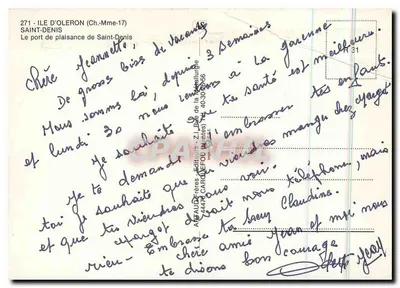 271 - ILE D'OLERON (Ch.-Mme-17)
SAINT-DENIS
Le port de plaisance de Saint-Denis
Chère Jeannette,
De gross biss de vacances
Nous sommes ici, depuis 3 semaines
et lundi 30 nous rentrons à la garenne
Je souhaite que ta santé est meilleure.
Je te demande d'embrasser tes enfants.
toi je souhaite que tu viendras manger chez Margot
et que tu viendras nous voir.
Margot avait nous téléphoner, mais
rien - Embrasse ta sœur Claudine.
Chère amie Jean et moi nous
te disons bon courage
Jean
31